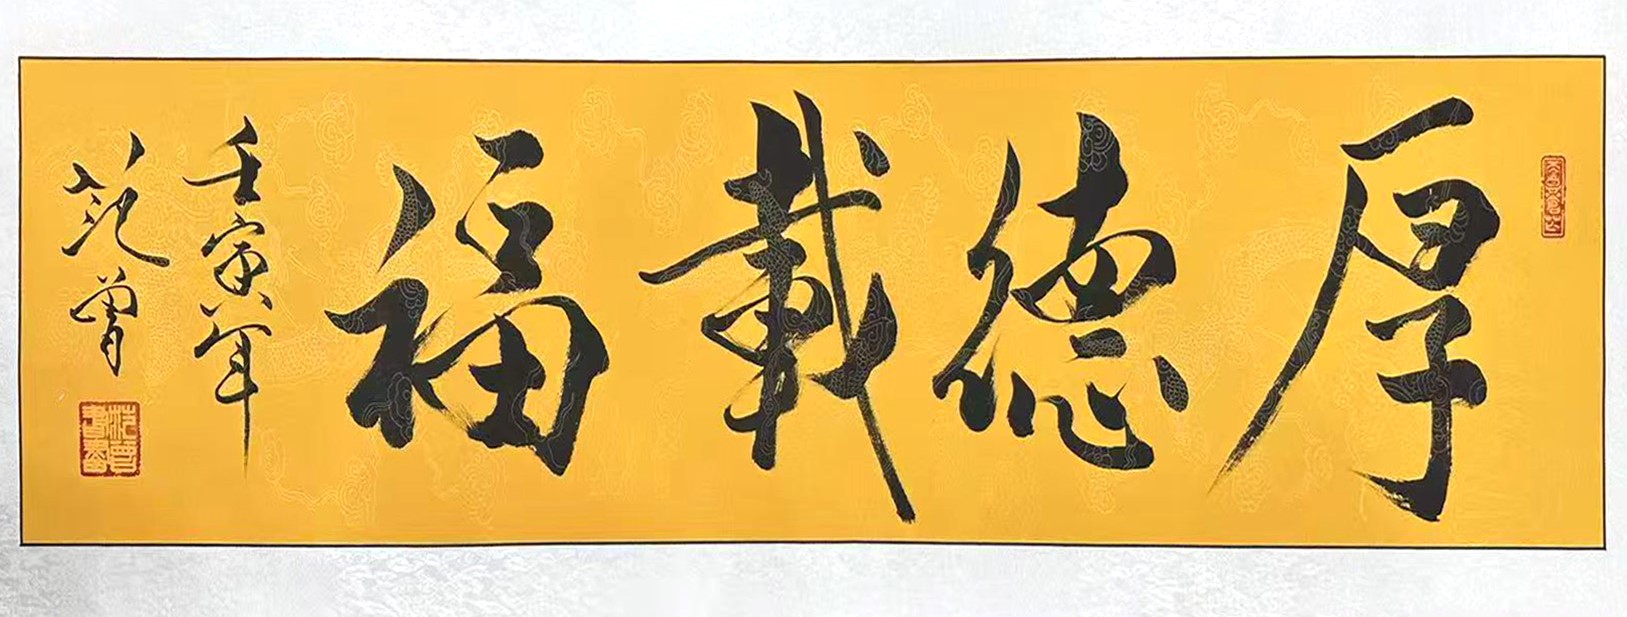 厚德載福
壬寅年
范曾